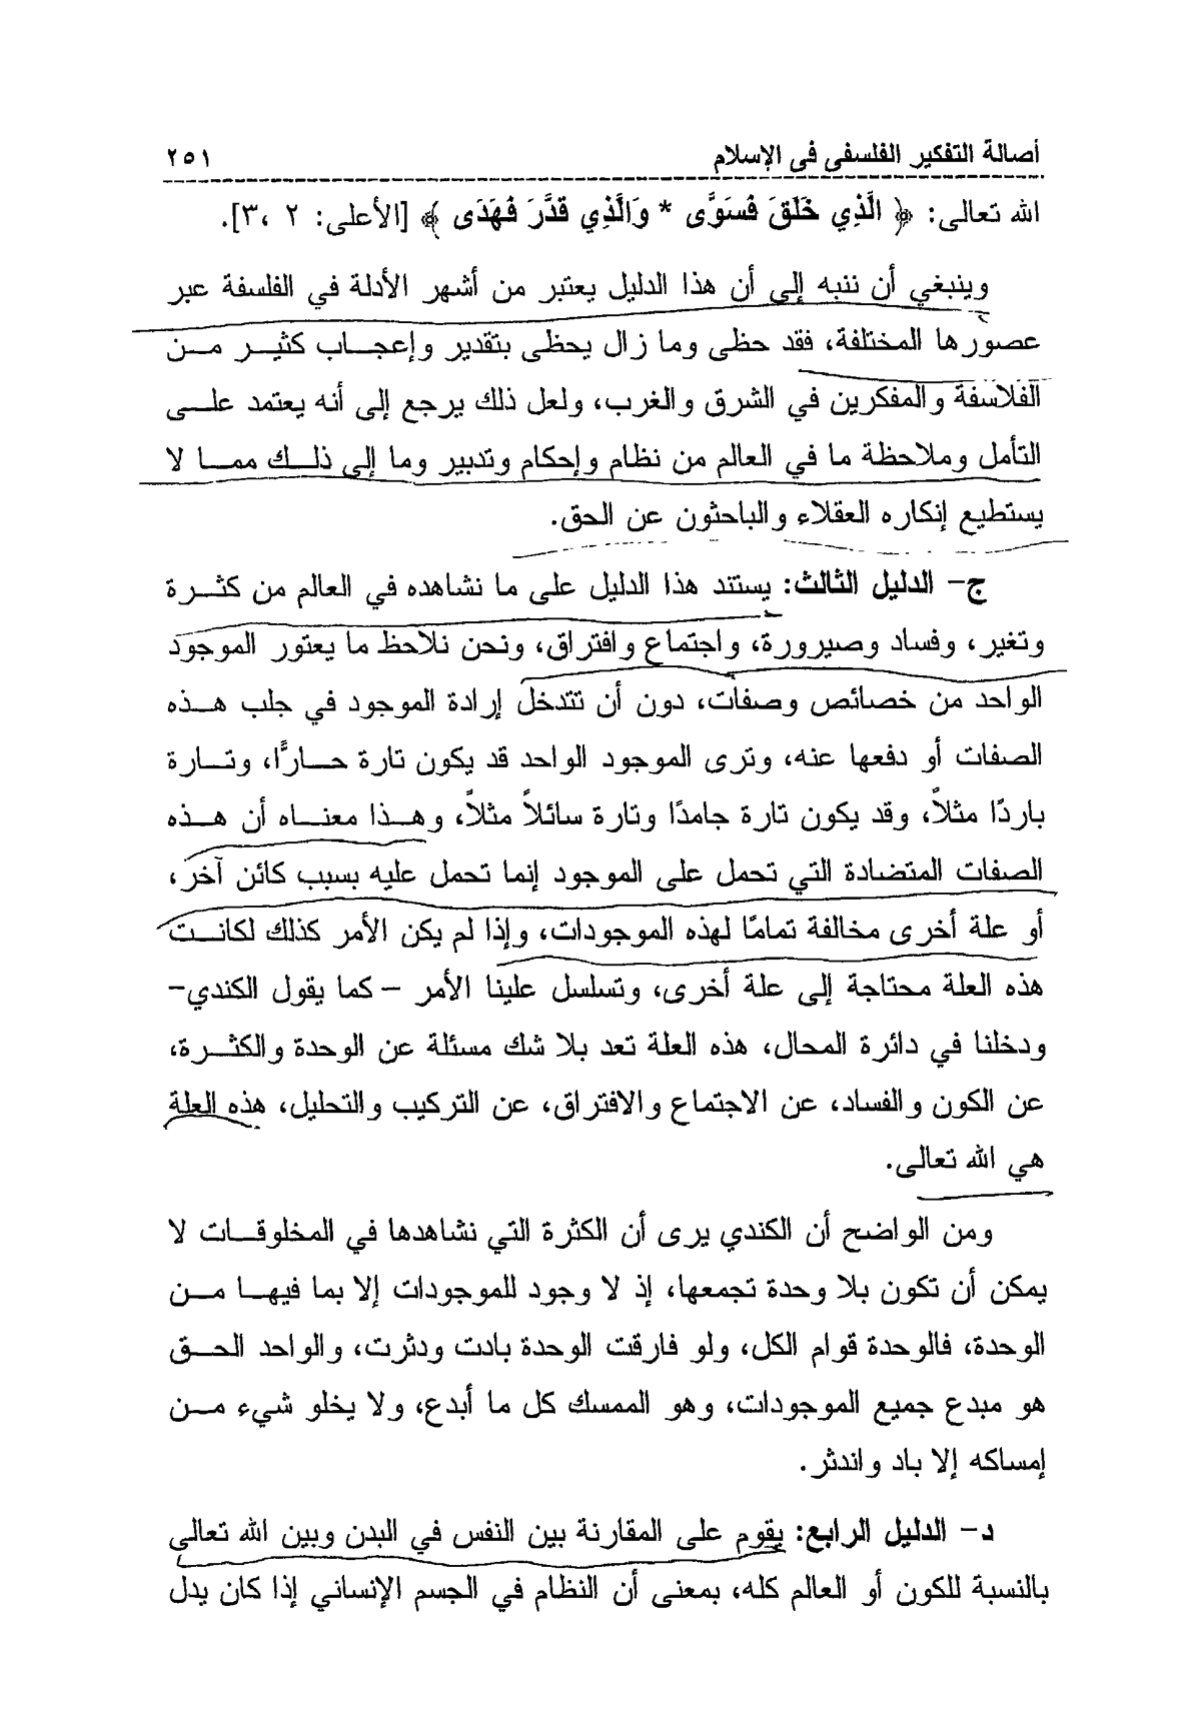 أصالة التفكير الفلسفى فى الإسلام ٢٥١
الله تعالى: ﴿ الَّذِي خَلَقَ فَسَوَّى * وَالَّذِي قَدَّرَ فَهَدَى ﴾ [الأعلى: ٢ ،٣].
وينبغي أن ننبه إلى أن هذا الدليل يعتبر من أشهر الأدلة في الفلسفة عبر
عصورها المختلفة، فقد حظى وما زال يحظى بتقدير وإعجاب كثير من
الفلاسفة والمفكرين في الشرق والغرب، ولعل ذلك يرجع إلى أنه يعتمد على
التأمل وملاحظة ما في العالم من نظام وإحكام وتدبير وما إلى ذلك مما لا
يستطيع إنكاره العقلاء والباحثون عن الحق.
ج- الدليل الثالث: يستند هذا الدليل على ما نشاهده في العالم من كثرة
وتغير، وفساد وصيرورة، واجتماع وافتراق، ونحن نلاحظ ما يعتور الموجود
الواحد من خصائص وصفات، دون أن تتدخل إرادة الموجود في جلب هذه
الصفات أو دفعها عنه، وترى الموجود الواحد قد يكون تارة حارًّا، وتارة
باردًا مثلاً، وقد يكون تارة جامدًا وتارة سائلاً مثلاً، وهذا معناه أن هذه
الصفات المتضادة التي تحمل على الموجود إنما تحمل عليه بسبب كائن آخر،
أو علة أخرى مخالفة تمامًا لهذه الموجودات، وإذا لم يكن الأمر كذلك لكانت
هذه العلة محتاجة إلى علة أخرى، وتسلسل علينا الأمر – كما يقول الكندي-
ودخلنا في دائرة المحال، هذه العلة تعد بلا شك مسئلة عن الوحدة والكثرة،
عن الكون والفساد، عن الاجتماع والافتراق، عن التركيب والتحليل، هذه العلة
هي الله تعالى.
ومن الواضح أن الكندي يرى أن الكثرة التي نشاهدها في المخلوقات لا
يمكن أن تكون بلا وحدة تجمعها، إذ لا وجود للموجودات إلا بما فيها من
الوحدة، فالوحدة قوام الكل، ولو فارقت الوحدة بادت ودثرت، والواحد الحق
هو مبدع جميع الموجودات، وهو الممسك كل ما أبدع، ولا يخلو شيء من
إمساكه إلا باد واندثر.
د- الدليل الرابع: يقوم على المقارنة بين النفس في البدن وبين الله تعالى
بالنسبة للكون أو العالم كله، بمعنى أن النظام في الجسم الإنساني إذا كان يدل